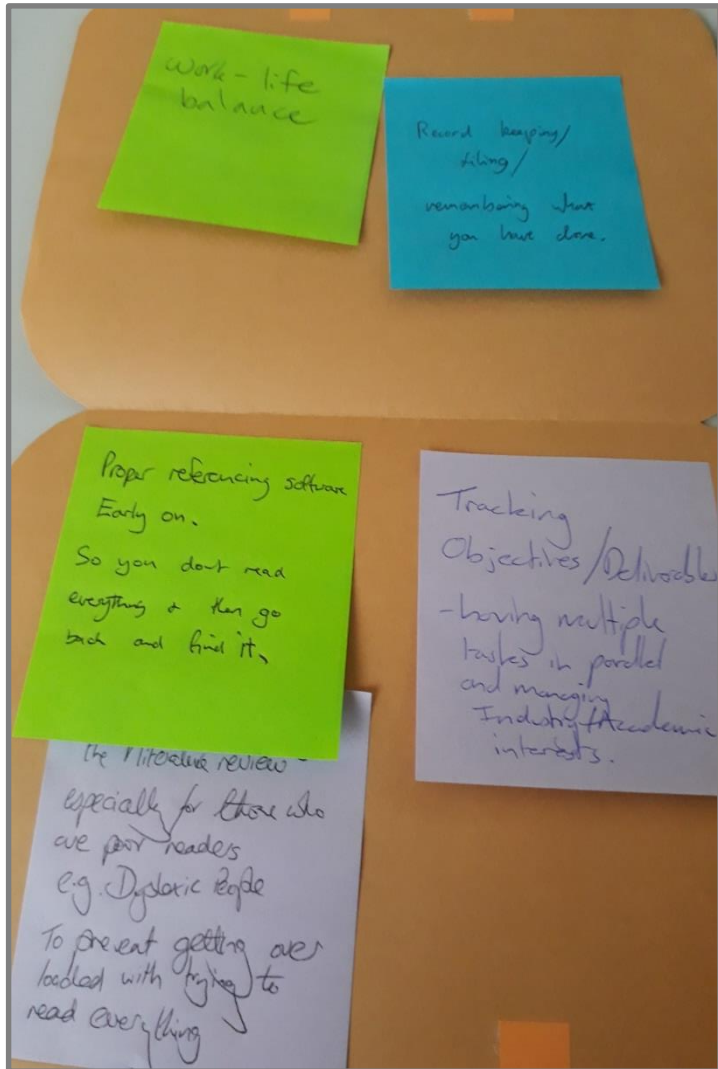 Work-life
balance
Record keeping/
filing/
remembering what
you have done.
Proper referencing software
Early on.
So you dont read
everything & then go
back and find it.
Tracking
Objectives/Deliverables
-having multiple
tasks in parallel
and managing
Industry+Academic
interests.
the literature review
especially for those who
are poor readers
e.g. Dyslexic People
To prevent getting over
loaded with trying to
read everything